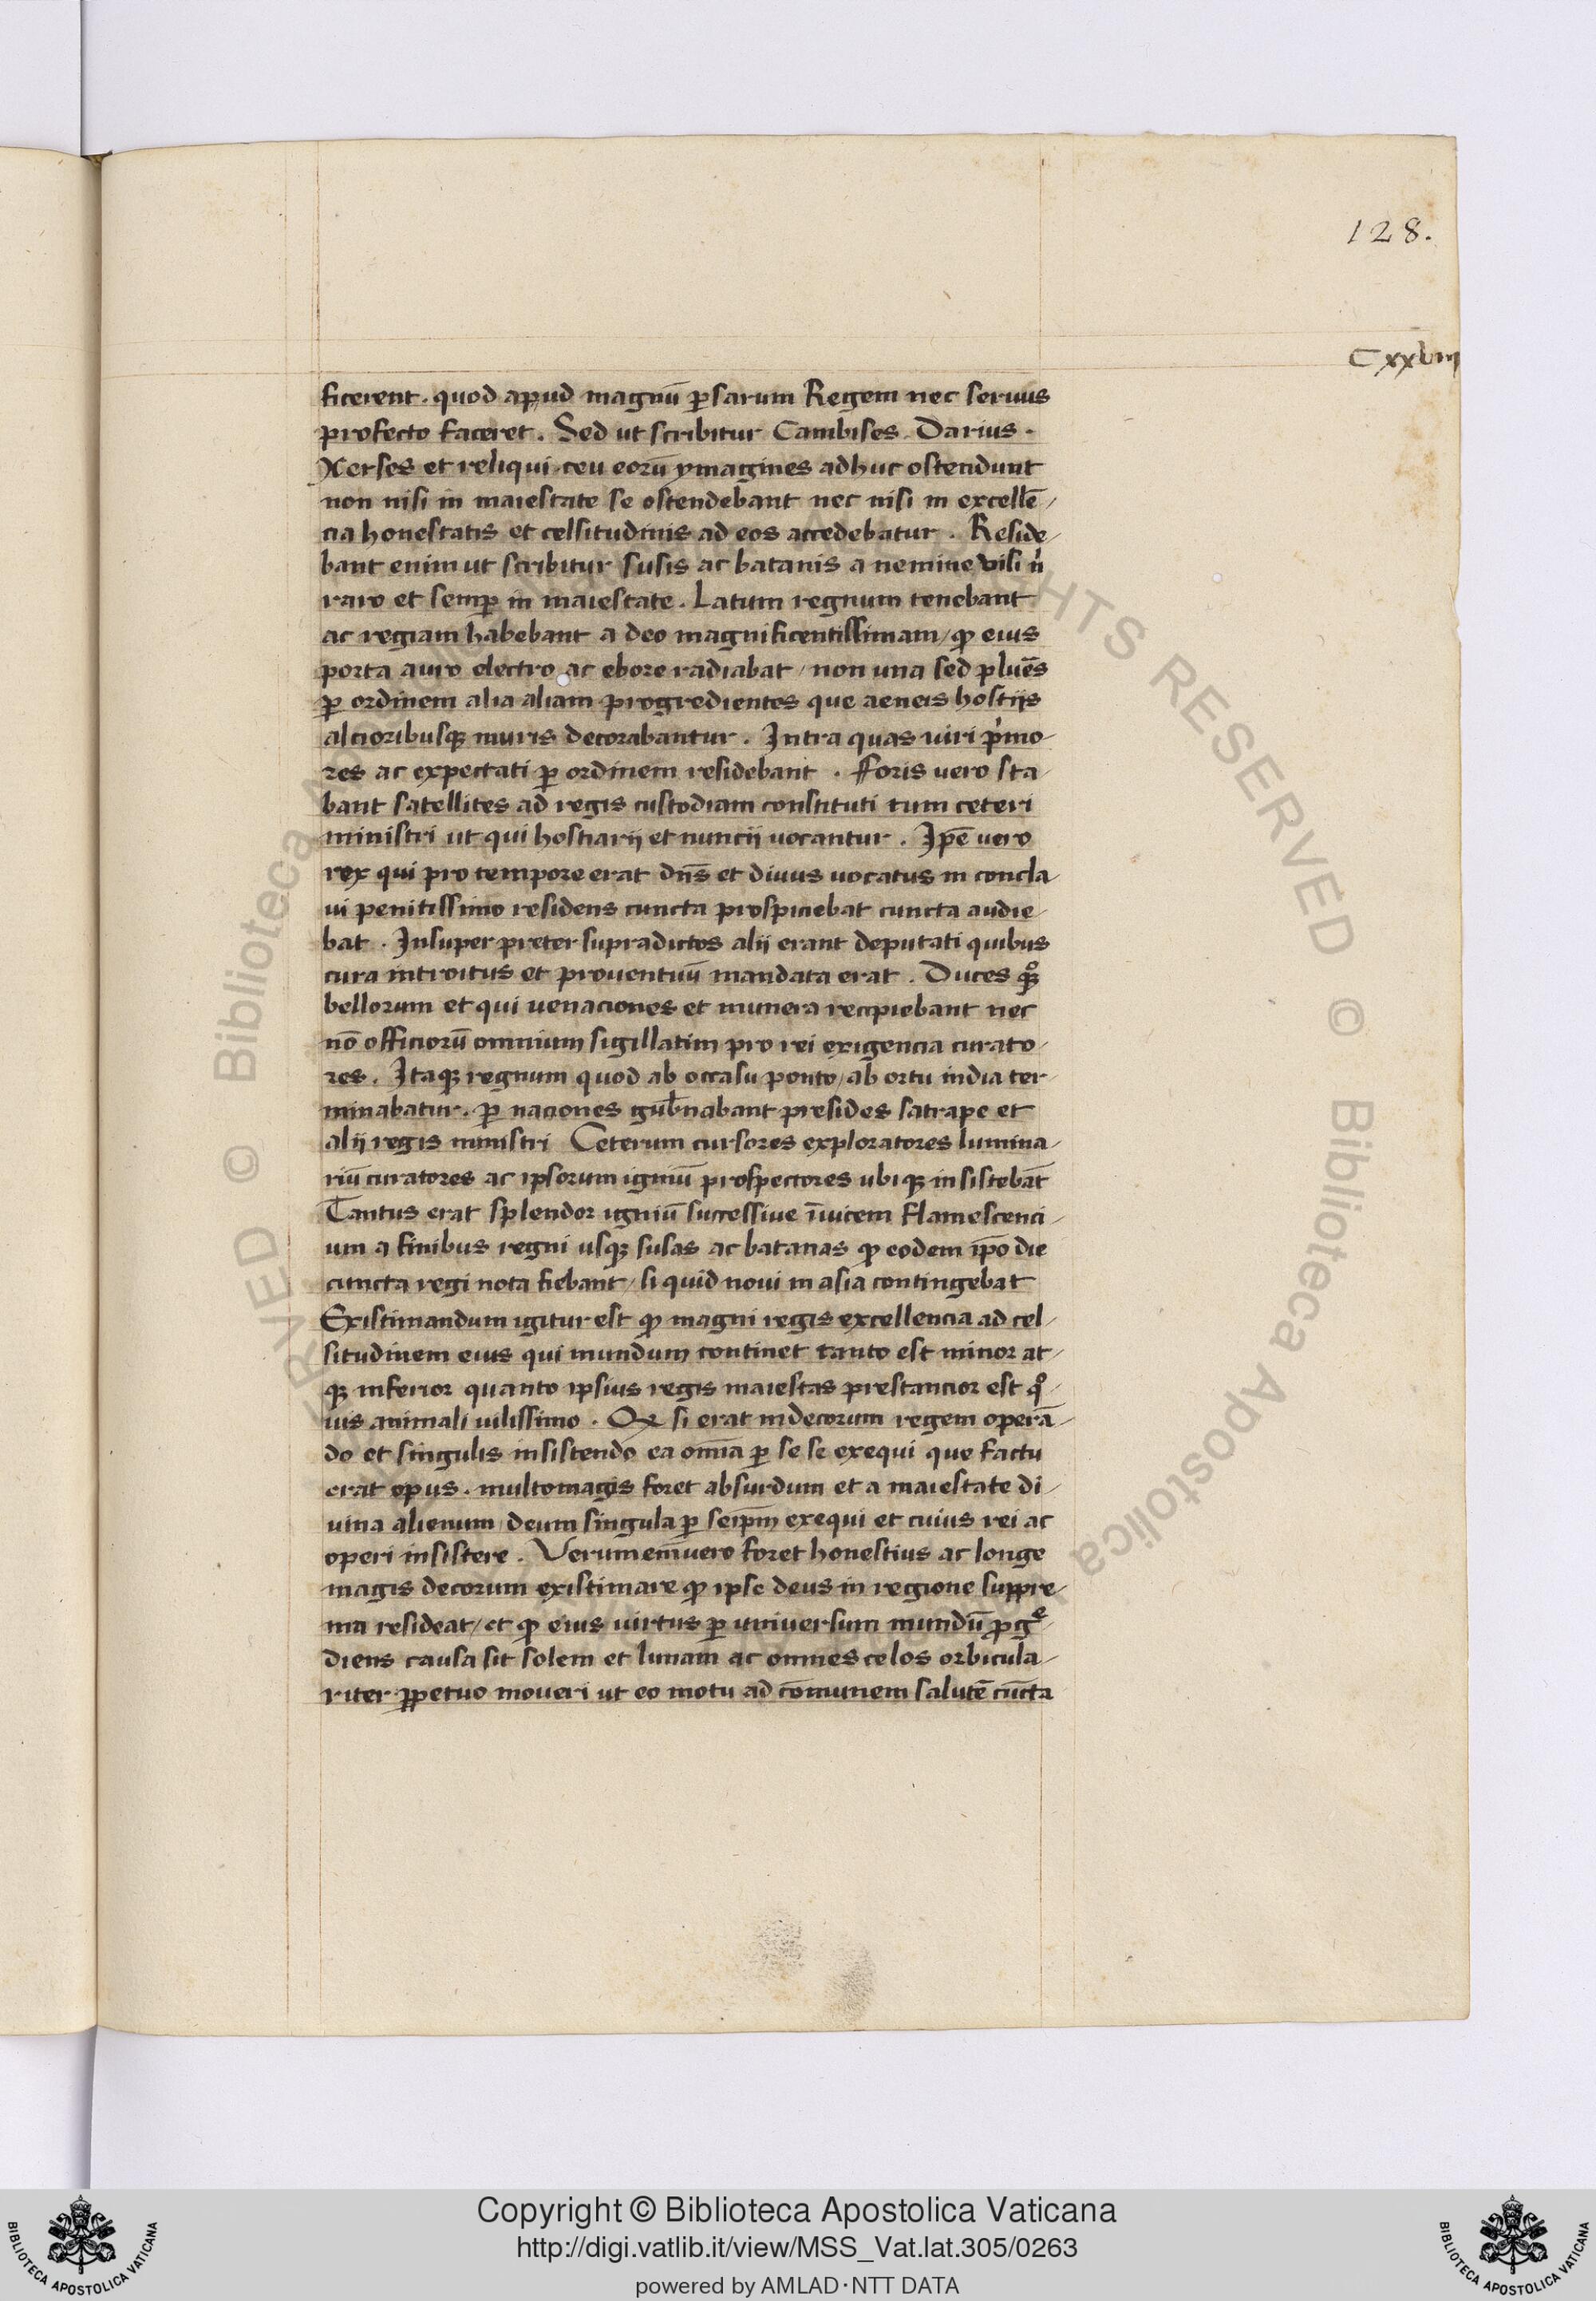 128.
CXXVIII
ficerent . quod apud magnū ꝑsarum Regem nec seruus
profecto faceret . Sed ut scribitur Cambises . Darius .
Xerses et reliqui ceu eorū ymagines adhuc ostendunt
non nisi in maiestate se ostendebant nec nisi in excellē/
cia honestatis et celsitudinis ad eos accedebatur . Reside/
bant enim ut scribitur susis ac batanis a nemine visi n̍
raro et semꝑ in maiestate . Latum regnum tenebant
ac regiam habebant a deo magnificentissimam / ꝙ eius
porta auro electro ac ebore radiabat / non una sed plues̄
ꝑ ordinem alia aliam progredientes que aeneis hostijs
alcioribusqꝫ muris decorabantur . Intra quas uiri p̍mo-
res ac expectati ꝑ ordinem residebant . Foris vero sta/
bant satellites ad regis custodiam constituti tum ceteri
ministri ut qui hostiarij et nuncii uocantur . Ip̄e vero
rex qui pro tempore erat dn̄s et diuus uocatus in concla/
ui penitissimo residens cuncta prospiciebat cuncta audie/
bat . Insuper preter supradictos alij erant deputati quibus
cura introitus et prouentuū mandata erat . Duces qꝫͦ
bellorum et qui uenaciones et munera recipiebant nec
nō officiorū omnium sigillatim pro rei exigencia curato-
res . Itaqꝫ regnum quod ab occasu ponto / ab ortu india ter-
minabatur . ꝑ naciones gub̄nabant presides satrape et
alij regis ministri Ceterum cursores exploratores lumina/
riū curatores ac ipsorum igniū prospectores ubiqꝫ insistebāt
Tantus erat splendor igniū successiue īuicem flamescenci/
um a finibus regni usqꝫ susas ac batanas ꝙ eodem ip̄o die
cuncta regi nota fiebant / si quid noui in asia contingebat
Existimandum igitur est ꝙ magni regis excellencia ad cel/
situdinem eius qui mundum continet tanto est minor at/
qꝫ inferior quanto ipsius regis maiestas prestancior est qͦ/
uis animali uilissimo . Qꝫ si erat indecorum regem operā/
do et singulis insistendo ea om̄ia ꝑ se se exequi que factu
erat opus . multomagis foret absurdum et a maiestate di/
uina alienum / deum singula ꝑ seip̄m exequi et cuius rei ac
operi insistere . Verumem̄uero foret honestius ac longe
magis decorum existimare ꝙ ipse deus in regione suppre/
ma resideat / et ꝙ eius uirtus ꝑ uniuersum mundū ꝓgͤ/
diens causa sit solem et lunam ac omnes celos orbicula/
riter ꝑpetuo moueri ut eo motu ad cōmunem salutē cūcta
© Biblioteca Apostolica Vaticana ALL RIGHTS RESERVED © Biblioteca Apostolica
Copyright © Biblioteca Apostolica Vaticana
http://digi.vatlib.it/view/MSS_Vat.lat.305/0263
powered by AMLAD·NTT DATA
BIBLIOTECA APOSTOLICA VATICANA
BIBLIOTECA APOSTOLICA VATICANA